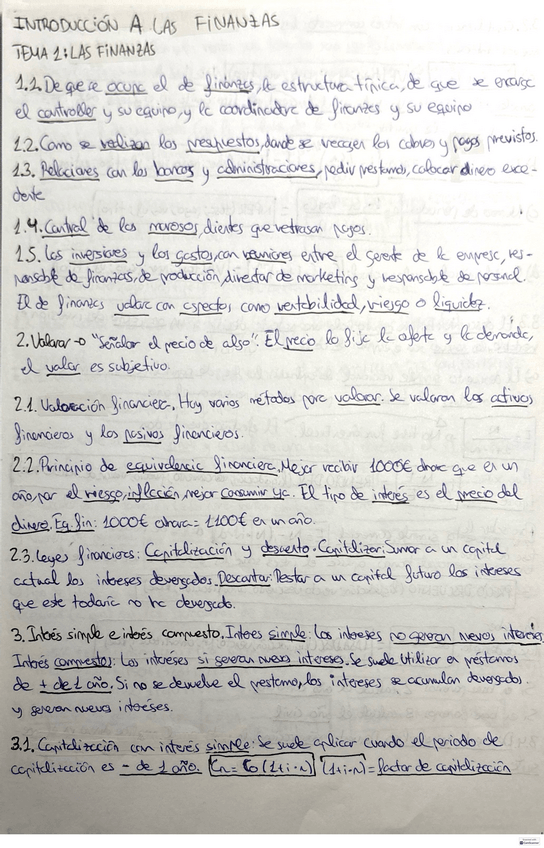 INTRODUCCIÓN A LAS FINANZAS
TEMA 1: LAS FINANZAS
1.1. De que se ocupa el de finanzas, la estructura típica, de que se encarga
el controller y su equipo, y la coordinadora de finanzas y su equipo
1.2. Como se realizan los presupuestos, donde se recogen los cobros y pagos previstos.
1.3. Relaciones con los bancos y administraciones, pedir prestamos, colocar dinero exce-
dente
1.4. Control de los morosos, clientes que retrasan pagos.
1.5. Las inversiones y los gastos, con reuniones entre el gerente de la empresa, res-
ponsable de finanzas, de producción, director de marketing y responsable de personal.
El de finanzas valora con aspectos como rentabilidad, riesgo o liquidez.
2. Valorar → "Señalar el precio de algo". El precio lo fija la oferta y la demanda,
el valor es subjetivo.
2.1. Valoración financiera. Hay varios métodos para valorar. Se valoran los activos
financieros y los pasivos financieros.
2.2. Principio de equivalencia financiera. Mejor recibir 1000€ ahora que en un
año, por el riesgo, inflación, mejor consumir ya. El tipo de interés es el precio del
dinero. Eq. fin: 1000€ ahora = 1100€ en un año.
2.3. Leyes financieras: Capitalización y descuento. Capitalizar: Sumar a un capital
actual los intereses devengados. Descontar: Restar a un capital futuro los intereses
que este todavía no ha devengado.
3. Interés simple e interés compuesto. Interes simple: Los intereses no generan nuevos intereses
Interés compuesto: Los intereses si generan nuevos intereses. Se suele utilizar en préstamos
de + de 1 año. Si no se devuelve el prestamo, los intereses se acumulan devengados
y generan nuevos intereses.
3.1. Capitalización con interés simple: Se suele aplicar cuando el periodo de
capitalización es - de 1 año. Cn = C0 (1+i·n) (1+i·n) = factor de capitalización